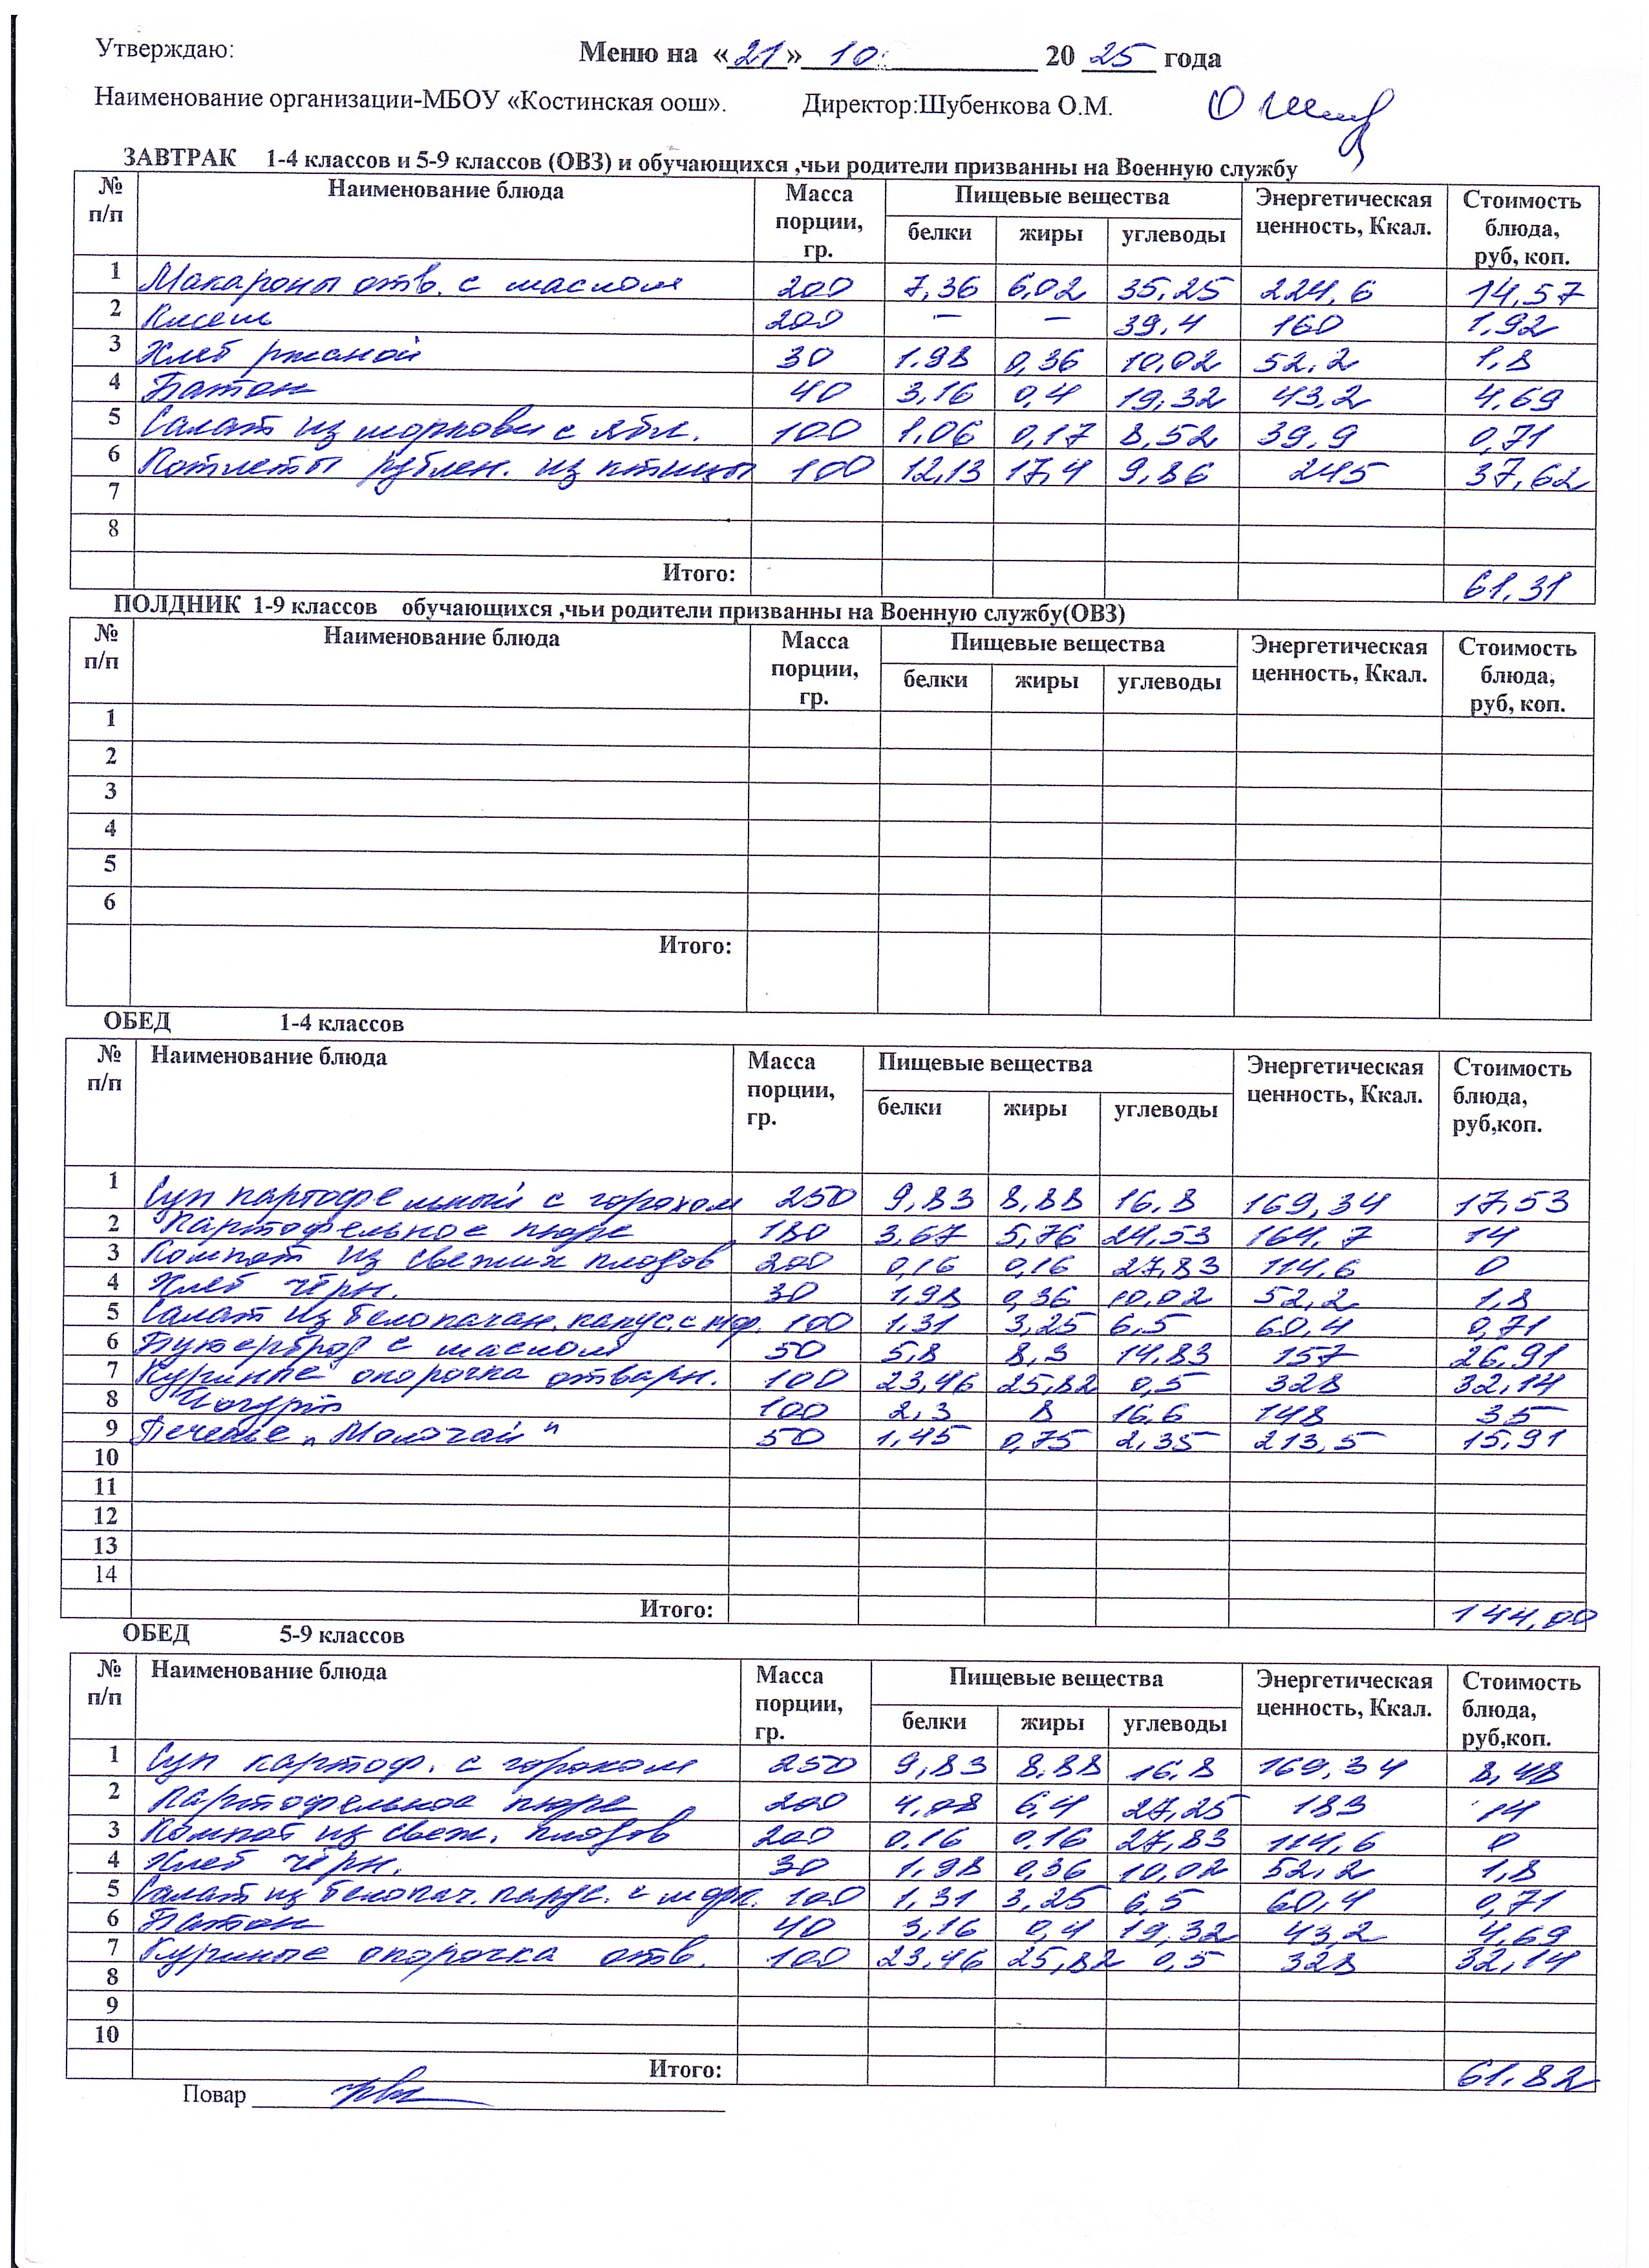 Утверждаю:
Меню на «21» 10. 2025 года
Наименование организации-МБОУ «Костинская оош». Директор:Шубенкова О.М.
ЗАВТРАК 1-4 классов и 5-9 классов (ОВЗ) и обучающихся ,чьи родители призванны на Военную службу
№ п/п Наименование блюда Масса порции, гр. Пищевые вещества Энергетическая ценность, Ккал. Стоимость блюда, руб, коп.
белки жиры углеводы
1 Макароны отв. с маслом 200 7,36 6,02 35,25 224,6 14,57
2 Кисель 200 – – 39,4 160 1,92
3 Хлеб ржаной 30 1.98 0,36 10,02 52,2 1,8
4 Батон 40 3,16 0,4 19,32 43,2 4,69
5 Салат из моркови с ябл. 100 1,06 0,17 8,52 39,9 0,71
6 Котлеты рублен. из птицы 100 12,13 17,4 9,86 245 37,62
7
8
Итого: 61,31
ПОЛДНИК 1-9 классов обучающихся ,чьи родители призванны на Военную службу(ОВЗ)
№ п/п Наименование блюда Масса порции, гр. Пищевые вещества Энергетическая ценность, Ккал. Стоимость блюда, руб, коп.
белки жиры углеводы
1
2
3
4
5
6
Итого:
ОБЕД 1-4 классов
№ п/п Наименование блюда Масса порции, гр. Пищевые вещества Энергетическая ценность, Ккал. Стоимость блюда, руб,коп.
белки жиры углеводы
1 Суп картофельный с горохом 250 9,83 8,88 16,8 169,34 17,53
2 Картофельное пюре 180 3,67 5,76 24,53 164,7 14
3 Компот из свежих плодов 200 0,16 0,16 27,83 114,6 0
4 Хлеб чёрн. 30 1,98 0,36 10,02 52,2 1,8
5 Салат из белокачан. капус. с мор. 100 1,31 3,25 6,5 60,4 0,71
6 Бутерброд с маслом 50 5,8 8,3 14,83 157 26,91
7 Куриные окорочка отварн. 100 23,46 25,82 0,5 328 32,14
8 Йогурт 100 2,3 8 16,6 148 35
9 Печенье „Молочай" 50 1,45 0,75 2,35 213,5 15,91
10
11
12
13
14
Итого: 144,00
ОБЕД 5-9 классов
№ п/п Наименование блюда Масса порции, гр. Пищевые вещества Энергетическая ценность, Ккал. Стоимость блюда, руб,коп.
белки жиры углеводы
1 Суп картоф. с горохом 250 9,83 8,88 16,8 169,34 8,48
2 Картофельное пюре 200 4,08 6,4 27,25 183 14
3 Компот из свеж. плодов 200 0,16 0,16 27,83 114,6 0
4 Хлеб чёрн. 30 1,98 0,36 10,02 52,2 1,8
5 Салат из белокач. капус. с морк. 100 1,31 3,25 6,5 60,4 0,71
6 Батон 40 3,16 0,4 19,32 43,2 4,69
7 Куриные окорочка отв. 100 23,46 25,82 0,5 328 32,14
8
9
10
Итого: 61,82
Повар